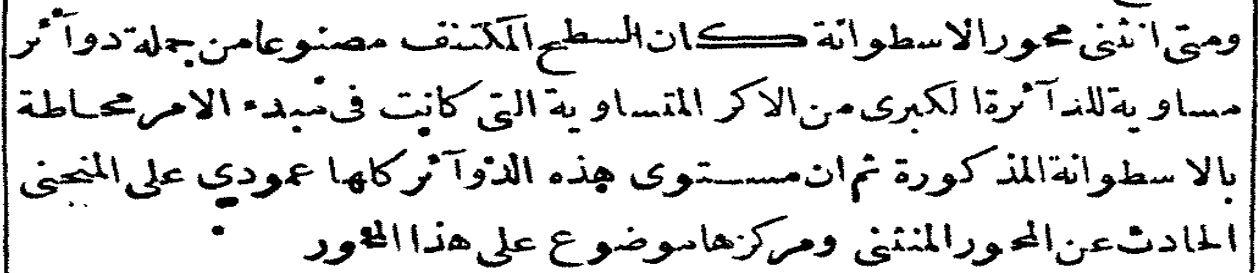 ومتى انثنى محور الاسطوانة كان السطح المكتنف مصنوعا من جملة دوآئر
مساوية للدآئرة الكبرى من الاكر المتساوية التى كانت فى مبدء الامر محاطة
بالاسطوانة المذكورة ثم ان مستوى هذه الدوآئر كلها عمودي على المنحنى
الحادث عن المحور المنثنى ومركزها موضوع على هذا المحور